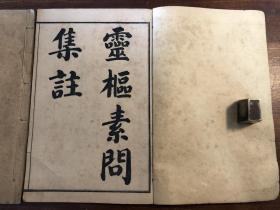 靈樞素問
集註